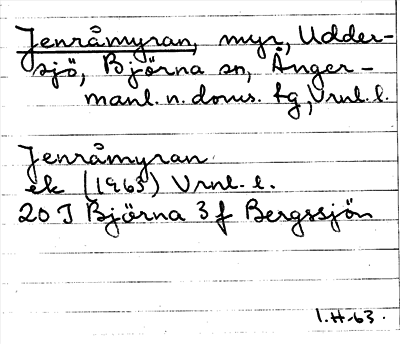 Jenråmyran, myr, Udder-
sjö, Björna sn, Ånger-
manl. n. doms. tg, Vrnl. l.
Jenråmyran
ek (1963) Vrnl. l.
20 J Björna 3 f Bergssjön
I.H-63.